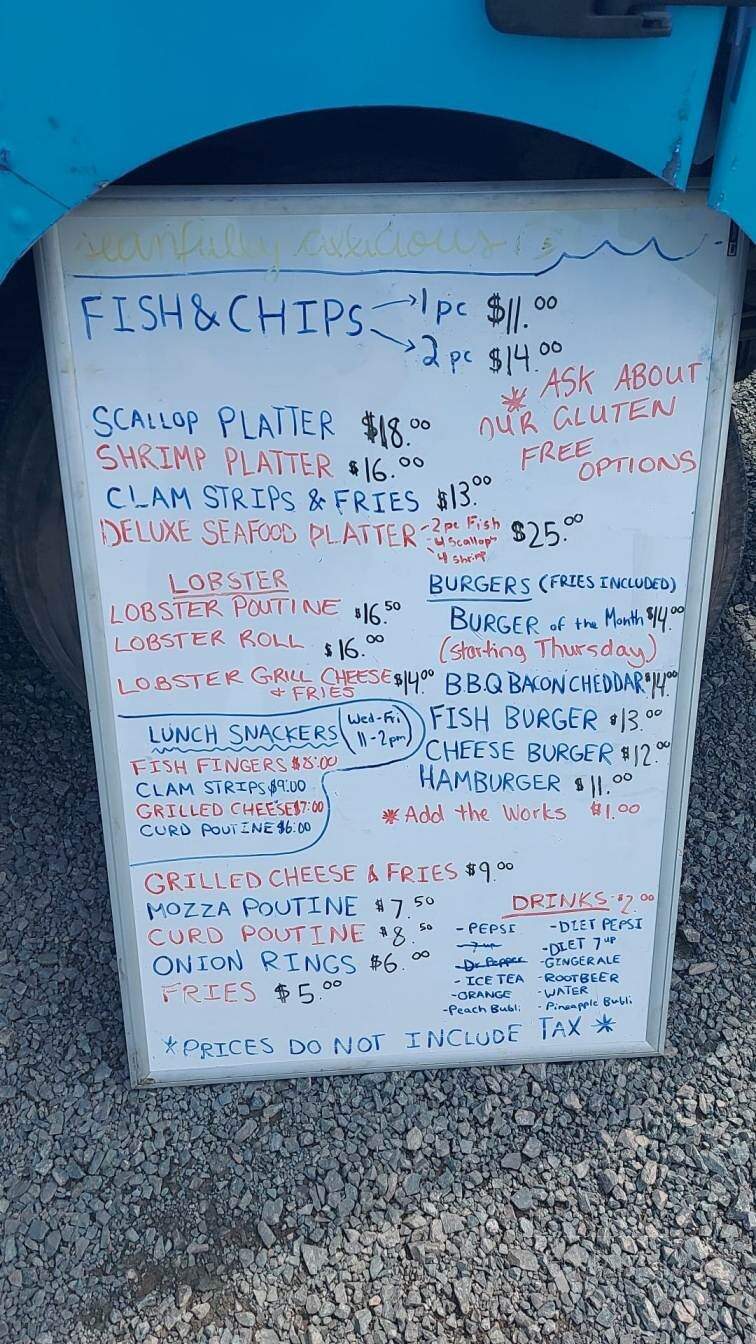 FISH & CHIPS → 1 pc $11.00
→ 2 pc $14.00
* ASK ABOUT
OUR GLUTEN
FREE
OPTIONS
SCALLOP PLATTER $18.00
SHRIMP PLATTER $16.00
CLAM STRIPS & FRIES $13.00
DELUXE SEAFOOD PLATTER - 2 pc Fish $25.00
- 4 Scallops
\ 4 Shrimp
LOBSTER
LOBSTER POUTINE $16.50
LOBSTER ROLL $16.00
LOBSTER GRILL CHEESE $14.00
+ FRIES
BURGERS (FRIES INCLUDED)
BURGER of the Month $14.00
(starting Thursday)
B.B.Q BACON CHEDDAR $14.00
FISH BURGER $13.00
CHEESE BURGER $12.00
HAMBURGER $11.00
* Add the Works $1.00
LUNCH SNACKERS (Wed-Fri
11-2pm)
FISH FINGERS $8:00
CLAM STRIPS $9:00
GRILLED CHEESE $7:00
CURD POUTINE $6:00
GRILLED CHEESE & FRIES $9.00
MOZZA POUTINE $7.50
CURD POUTINE $8.50
ONION RINGS $6.00
FRIES $5.00
DRINKS - $2.00
- PEPSI
- 7 up
- Dr. Pepper
- ICE TEA
- ORANGE
- Peach Bubli
- DIET PEPSI
- DIET 7 UP
- GINGERALE
- ROOTBEER
- WATER
- Pineapple Bubli
* PRICES DO NOT INCLUDE TAX *